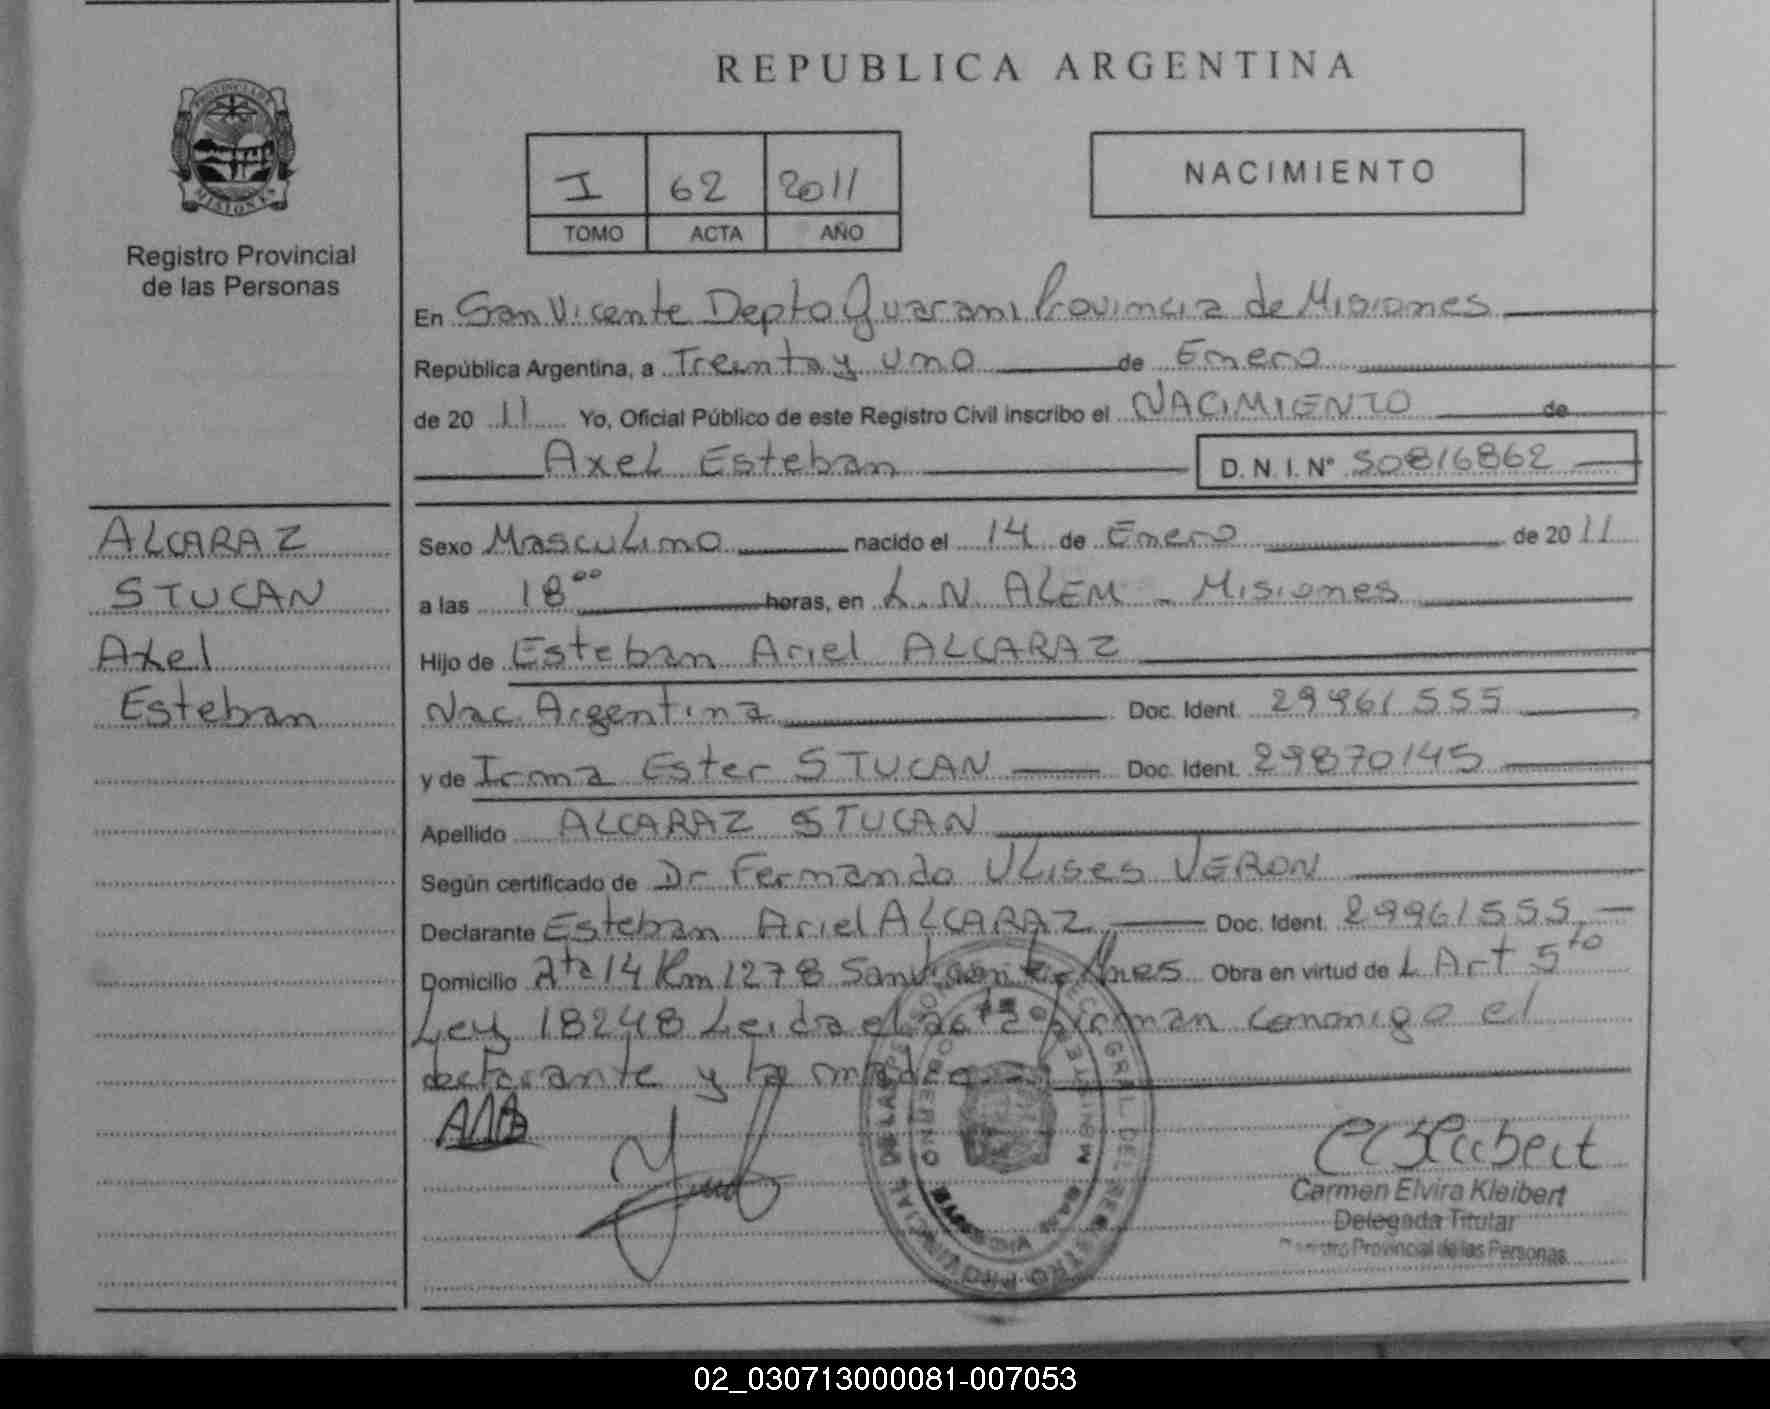 REPUBLICA ARGENTINA
I 62 2011
TOMO ACTA AÑO
NACIMIENTO
PROVINCIA DE
MISIONES
Registro Provincial
de las Personas
ALCARAZ
STUCAN
Axel
Esteban
En San Vicente Depto Guarani Provincia de Misiones
República Argentina, a Treinta y uno de Enero
de 20 11 Yo, Oficial Público de este Registro Civil inscribo el NACIMIENTO de
Axel Esteban D. N. I. Nº 50816862
Sexo Masculino nacido el 14 de Enero de 20 11
a las 18 00 horas, en L. N. ALEM - Misiones
Hijo de Esteban Ariel ALCARAZ
Nac. Argentina Doc. Ident. 29961555
y de Irma Ester STUCAN Doc. Ident. 29870145
Apellido ALCARAZ STUCAN
Según certificado de Dr Fernando Ulises VERON
Declarante Esteban Ariel ALCARAZ Doc. Ident. 29961555
Domicilio Rta 14 Km 1278 San Vicente Mnes Obra en virtud de L Art 5to
Ley 18248 Leida el acta firman conmigo el
declarante y la madre
Carmen Elvira Kleibert
Delegada Titular
Registro Provincial de las Personas
02_030713000081-007053